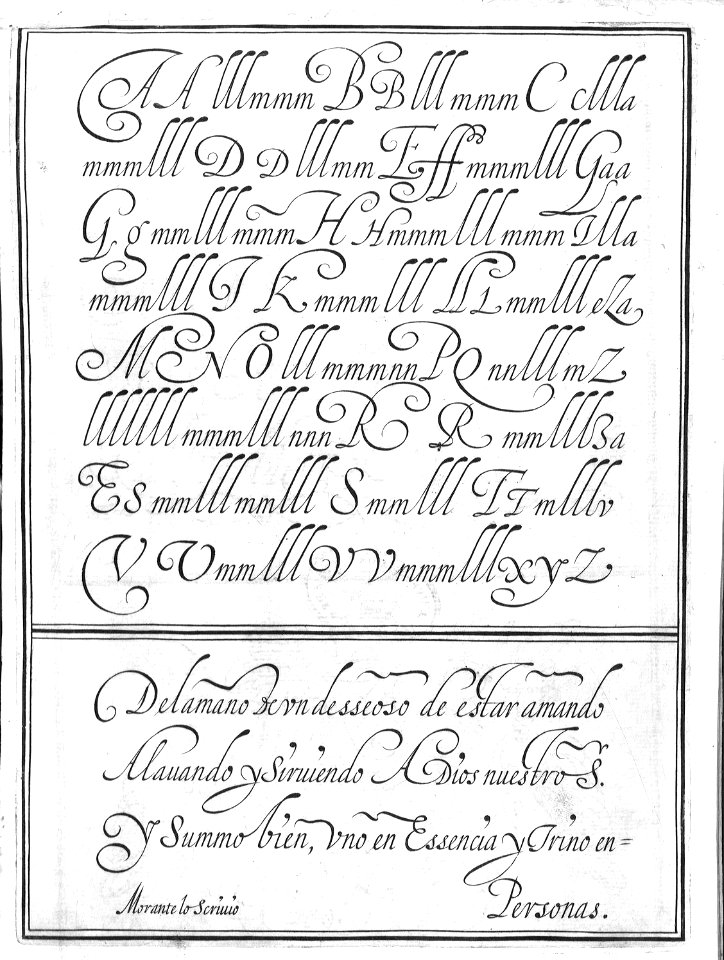 A A lllmmm B B lll mmm C clllla
mmmlll D D lllmm E ff mmmlll Gaa
G g mmlllmmm H Hmmmlllmmm Illa
mmmlll I K mmmlll LL L mmlll eZa
M E N O lllmmmnn P Q nnlllmZ
lllllll mmmlllnnn R R mmlll3a
E s mmlllmmlll S mmlll T T mlllv
V V mmlll V v mmmlllxyZ
Delamano de vn desseoso de estar amando
Alavando y Siruiendo A Dios nuestro S.r
y Summo bien, vno en Essencia y Trino en=
Personas.
Morante lo Scriuio